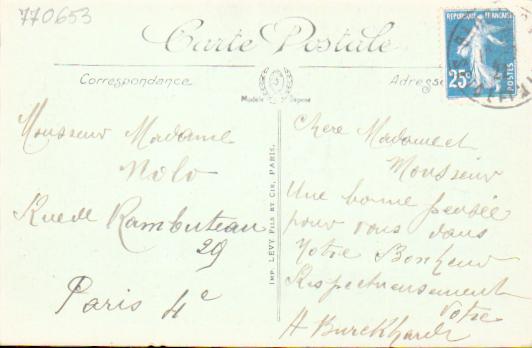 770653
Carte Postale
Correspondance
Adresse
Modèle Déposé
RÉPUBLIQUE FRANÇAISE
25c
POSTES
IMP. LÉVY FILS ET CIE, PARIS.
Monsieur Madame
Nolo
Rue de Rambuteau
29
Paris 4e
Chère Madame et
Monsieur
Une bonne pensée
pour vous dans
Notre Bonheur
Respectueusement
Votre
A Burckhardt